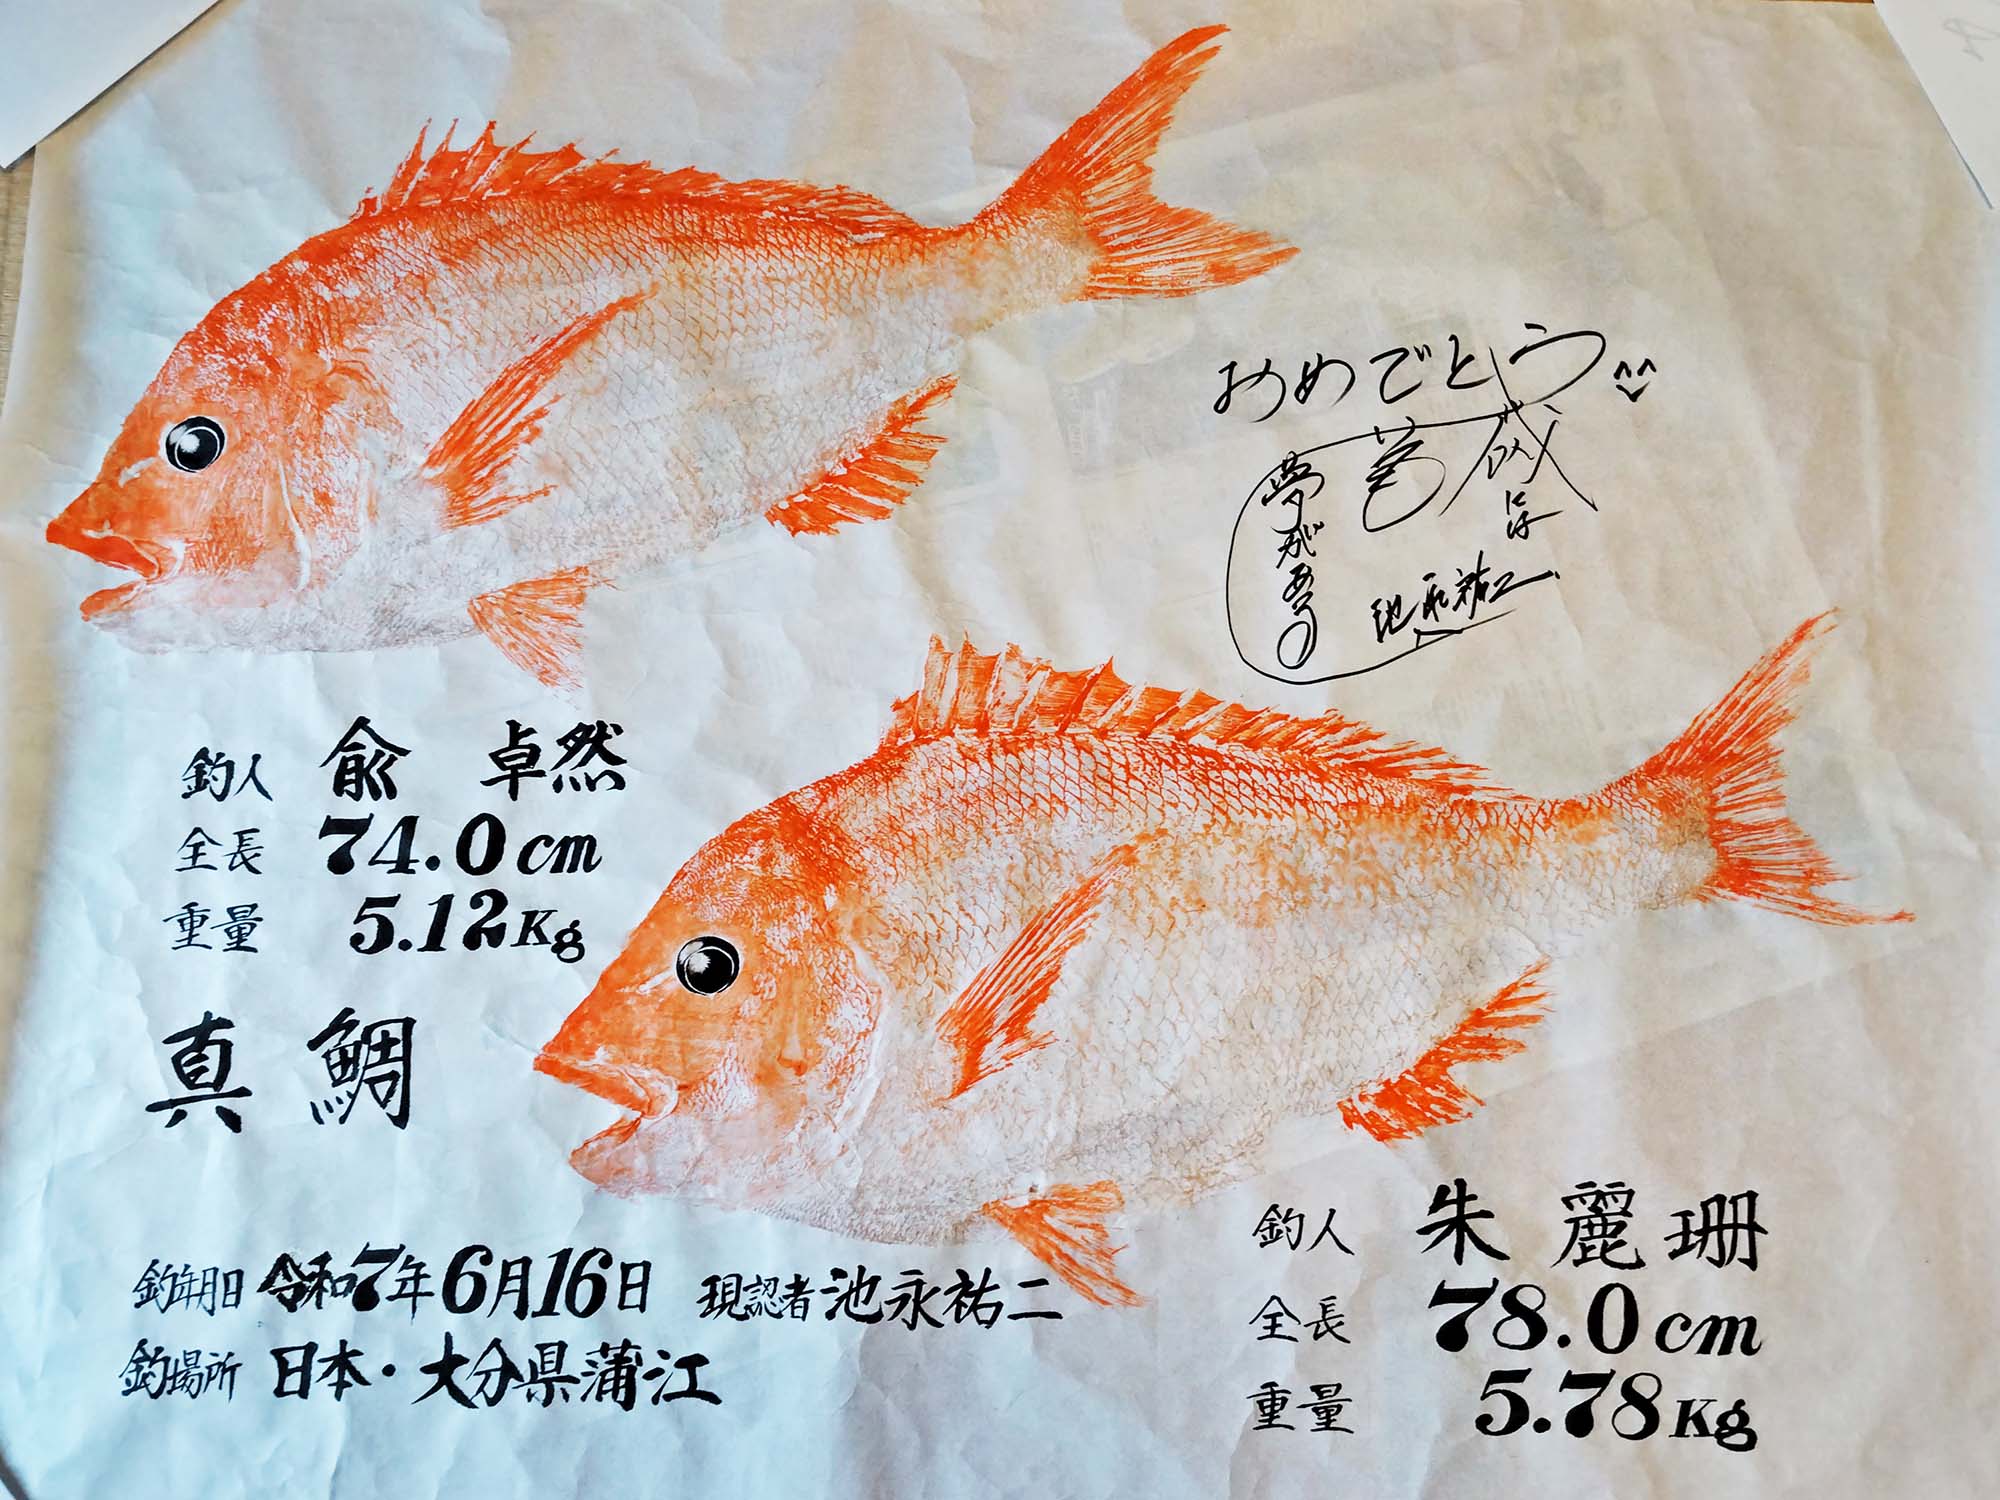 おめでとう^^
夢がある
池永祐二
釣人 俞 卓然
全長 74.0cm
重量 5.12Kg
真 鯛
釣年月日 令和7年6月16日 現認者 池永祐二
釣場所 日本・大分県蒲江
釣人 朱 麗珊
全長 78.0cm
重量 5.78Kg